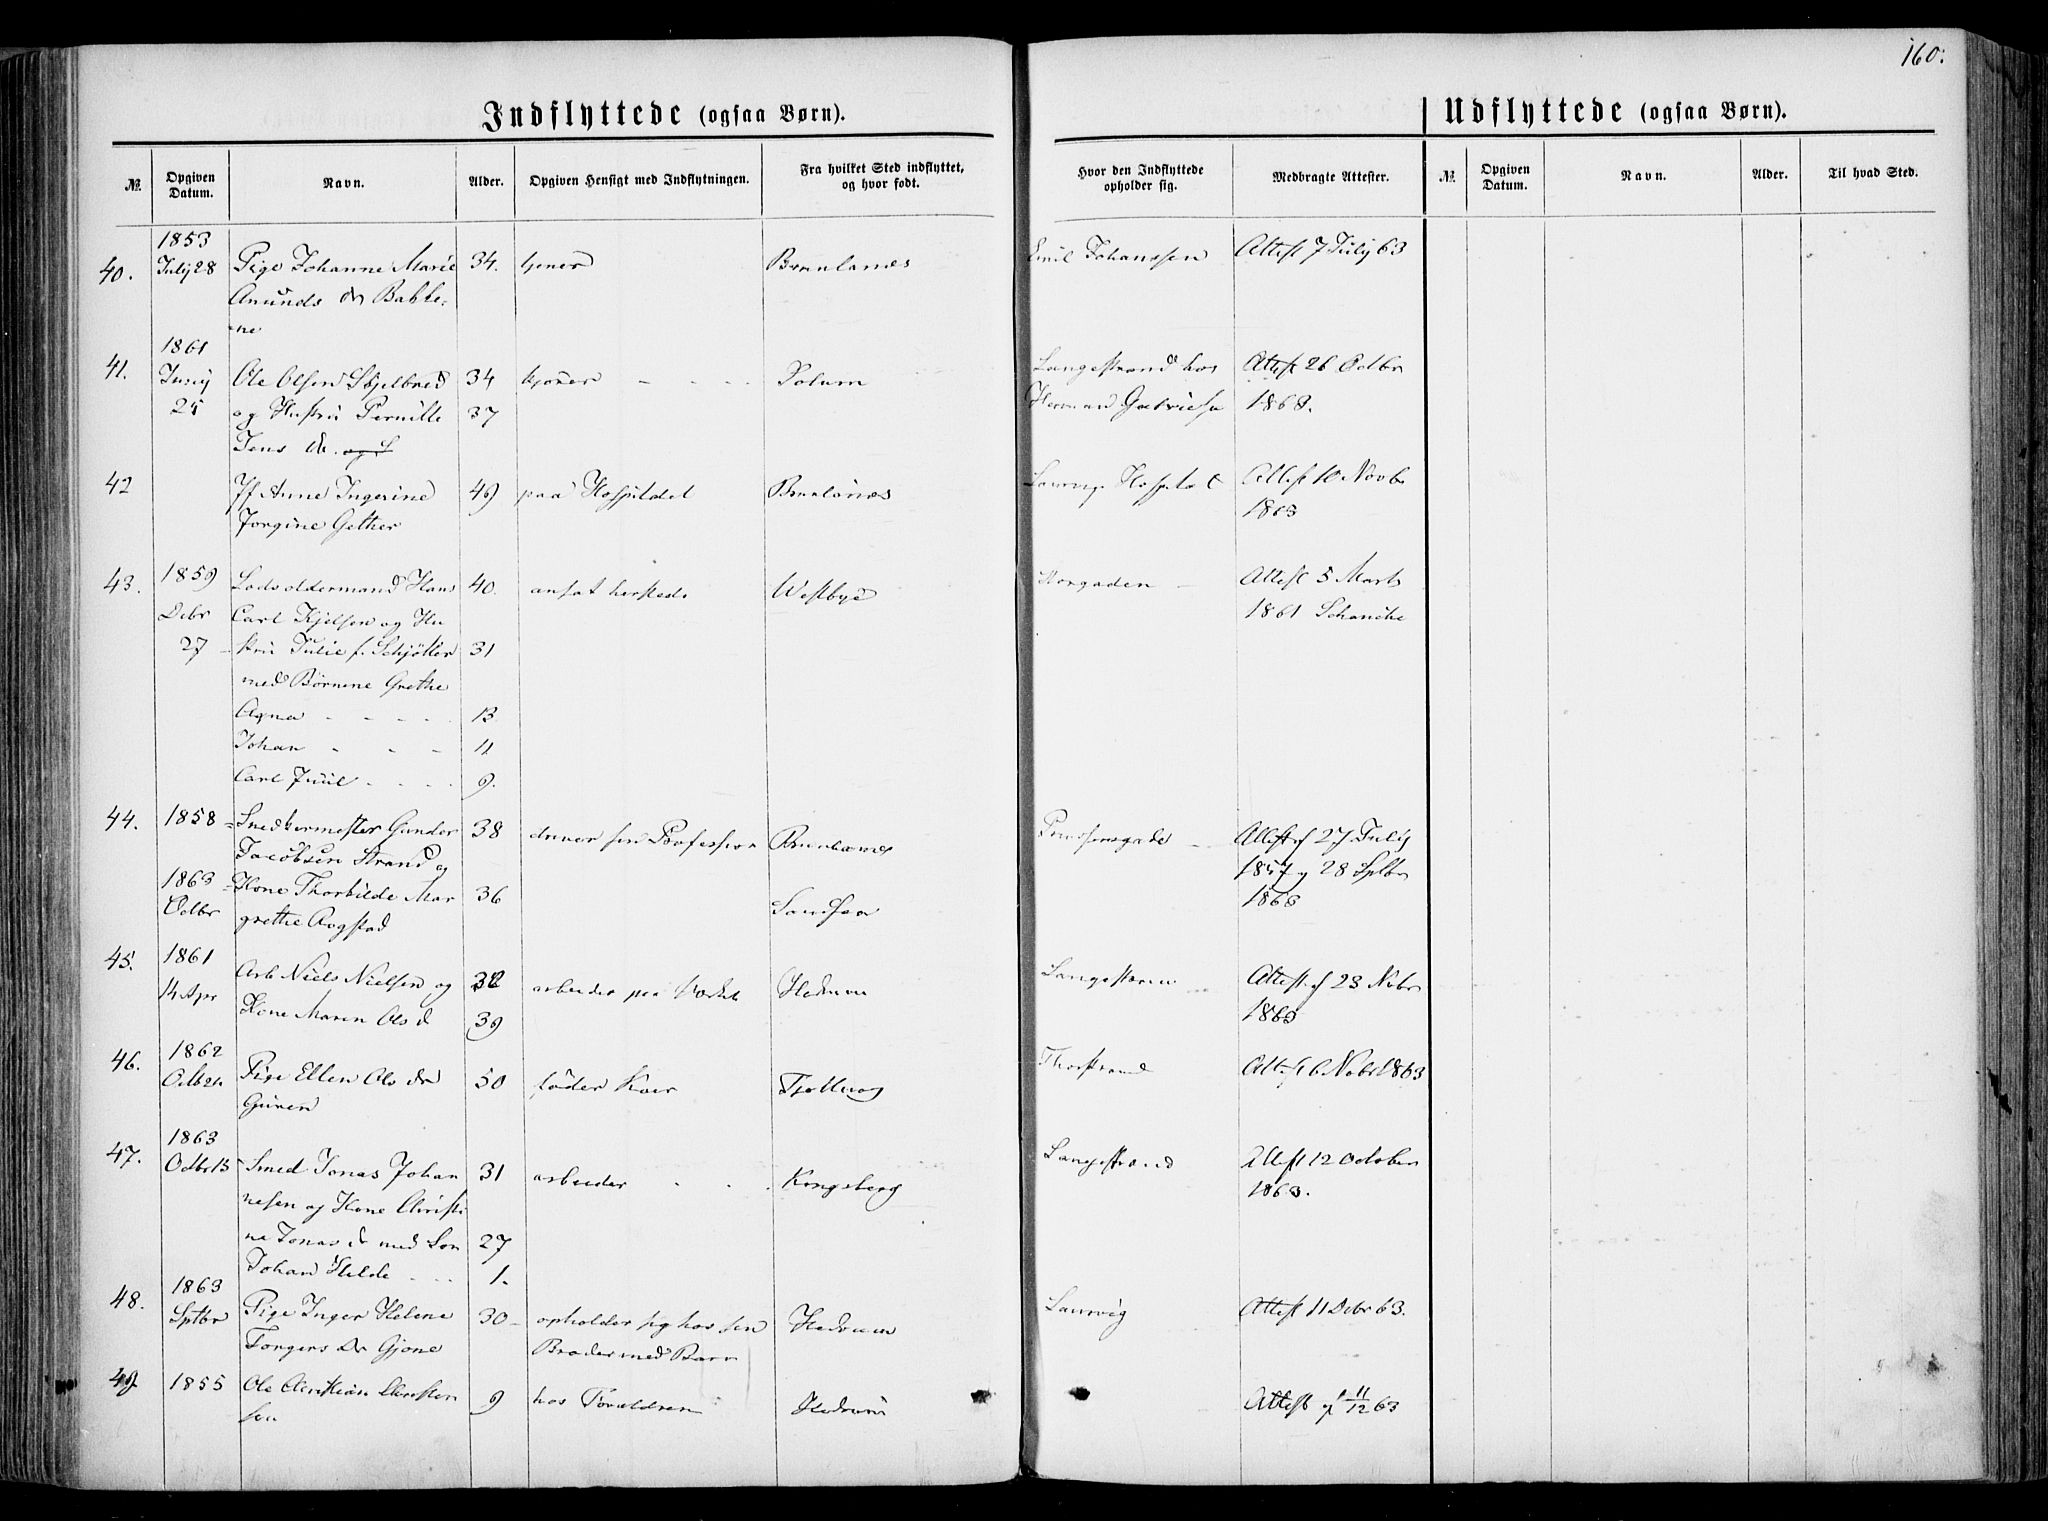 160.
Indflyttede (ogsaa Børn).
Udflyttede (ogsaa Børn).
№. Opgiven Datum. Navn. Alder. Opgiven Hensigt med Indflytningen. Fra hvilket Sted indflyttet, og hvor født. Hvor den Indflyttede opholder sig. Medbragte Attester. №. Opgiven Datum. Navn. Alder. Til hvad Sted.
1853
40. July 28 Pige Johanne Marie 34. tjener Brunlanes Emil Johanssen Attest 7 July 63
Anunds dr Bakke-
ne
1861
41. Ole Olsen 34 Solum Langestrand hos Attest 26 Octbr
25 og Hustru Pernille 37 Herman 1863.
Jens dr. og S
42 Jf Anne Ingerine 49 paa Hospitalet Brunlanes Laurvigs Hospital Attest 10 Novbr
Jorgine Gether 1863
43. 1859 Lodsoldermand Hans 40. ansat hersteds Westbye Attest 5 Marts
Debr Carl Kjelsen og Hu 1861 Schanche
27 stru Julie f. Schjøtler 31
med Børnene Grethe
Agna 13
Johan 11
Carl Juul 9.
44. 1858 Snedkermester Gunder 38 driver sin Profession Brunlanes Attest af 27 July
Jacobsen Strand og 1857 og 28 Sptbr
1863 Kone Thorkilde Mar 36 1863
Octbr grethe Aagstad
45. 1861 Arb Niels Nielsen og 32 arbeider paa Værket Hedrum Langestrand Attest af 23 Nobr
14 Apr Kone Maren Ols d 39 1863
46. 1862 Pige Ellen Ols dr 50 Tjølling Thorstrand Attest 6 Nobr 1863
Guren
47. 1863
Octbr 13 Smed Jonas Johan 31 arbeider Kongsberg Langestrand Attest 12 October
nesen og Kone Christi 1863.
ne Jonas dr med Søn 27
Johan Hilde 1.
48. 1863
Sptbr Pige Inger Helene 30 opholder sig hos sin Hedrum Laurvig Attest 11 Debr 63.
Torgers Dr Gjone Broder med Barn
49. 1855 Ole Christian Christen 9 hos Forældrene Hedrum Attest af 11/12 63
sen